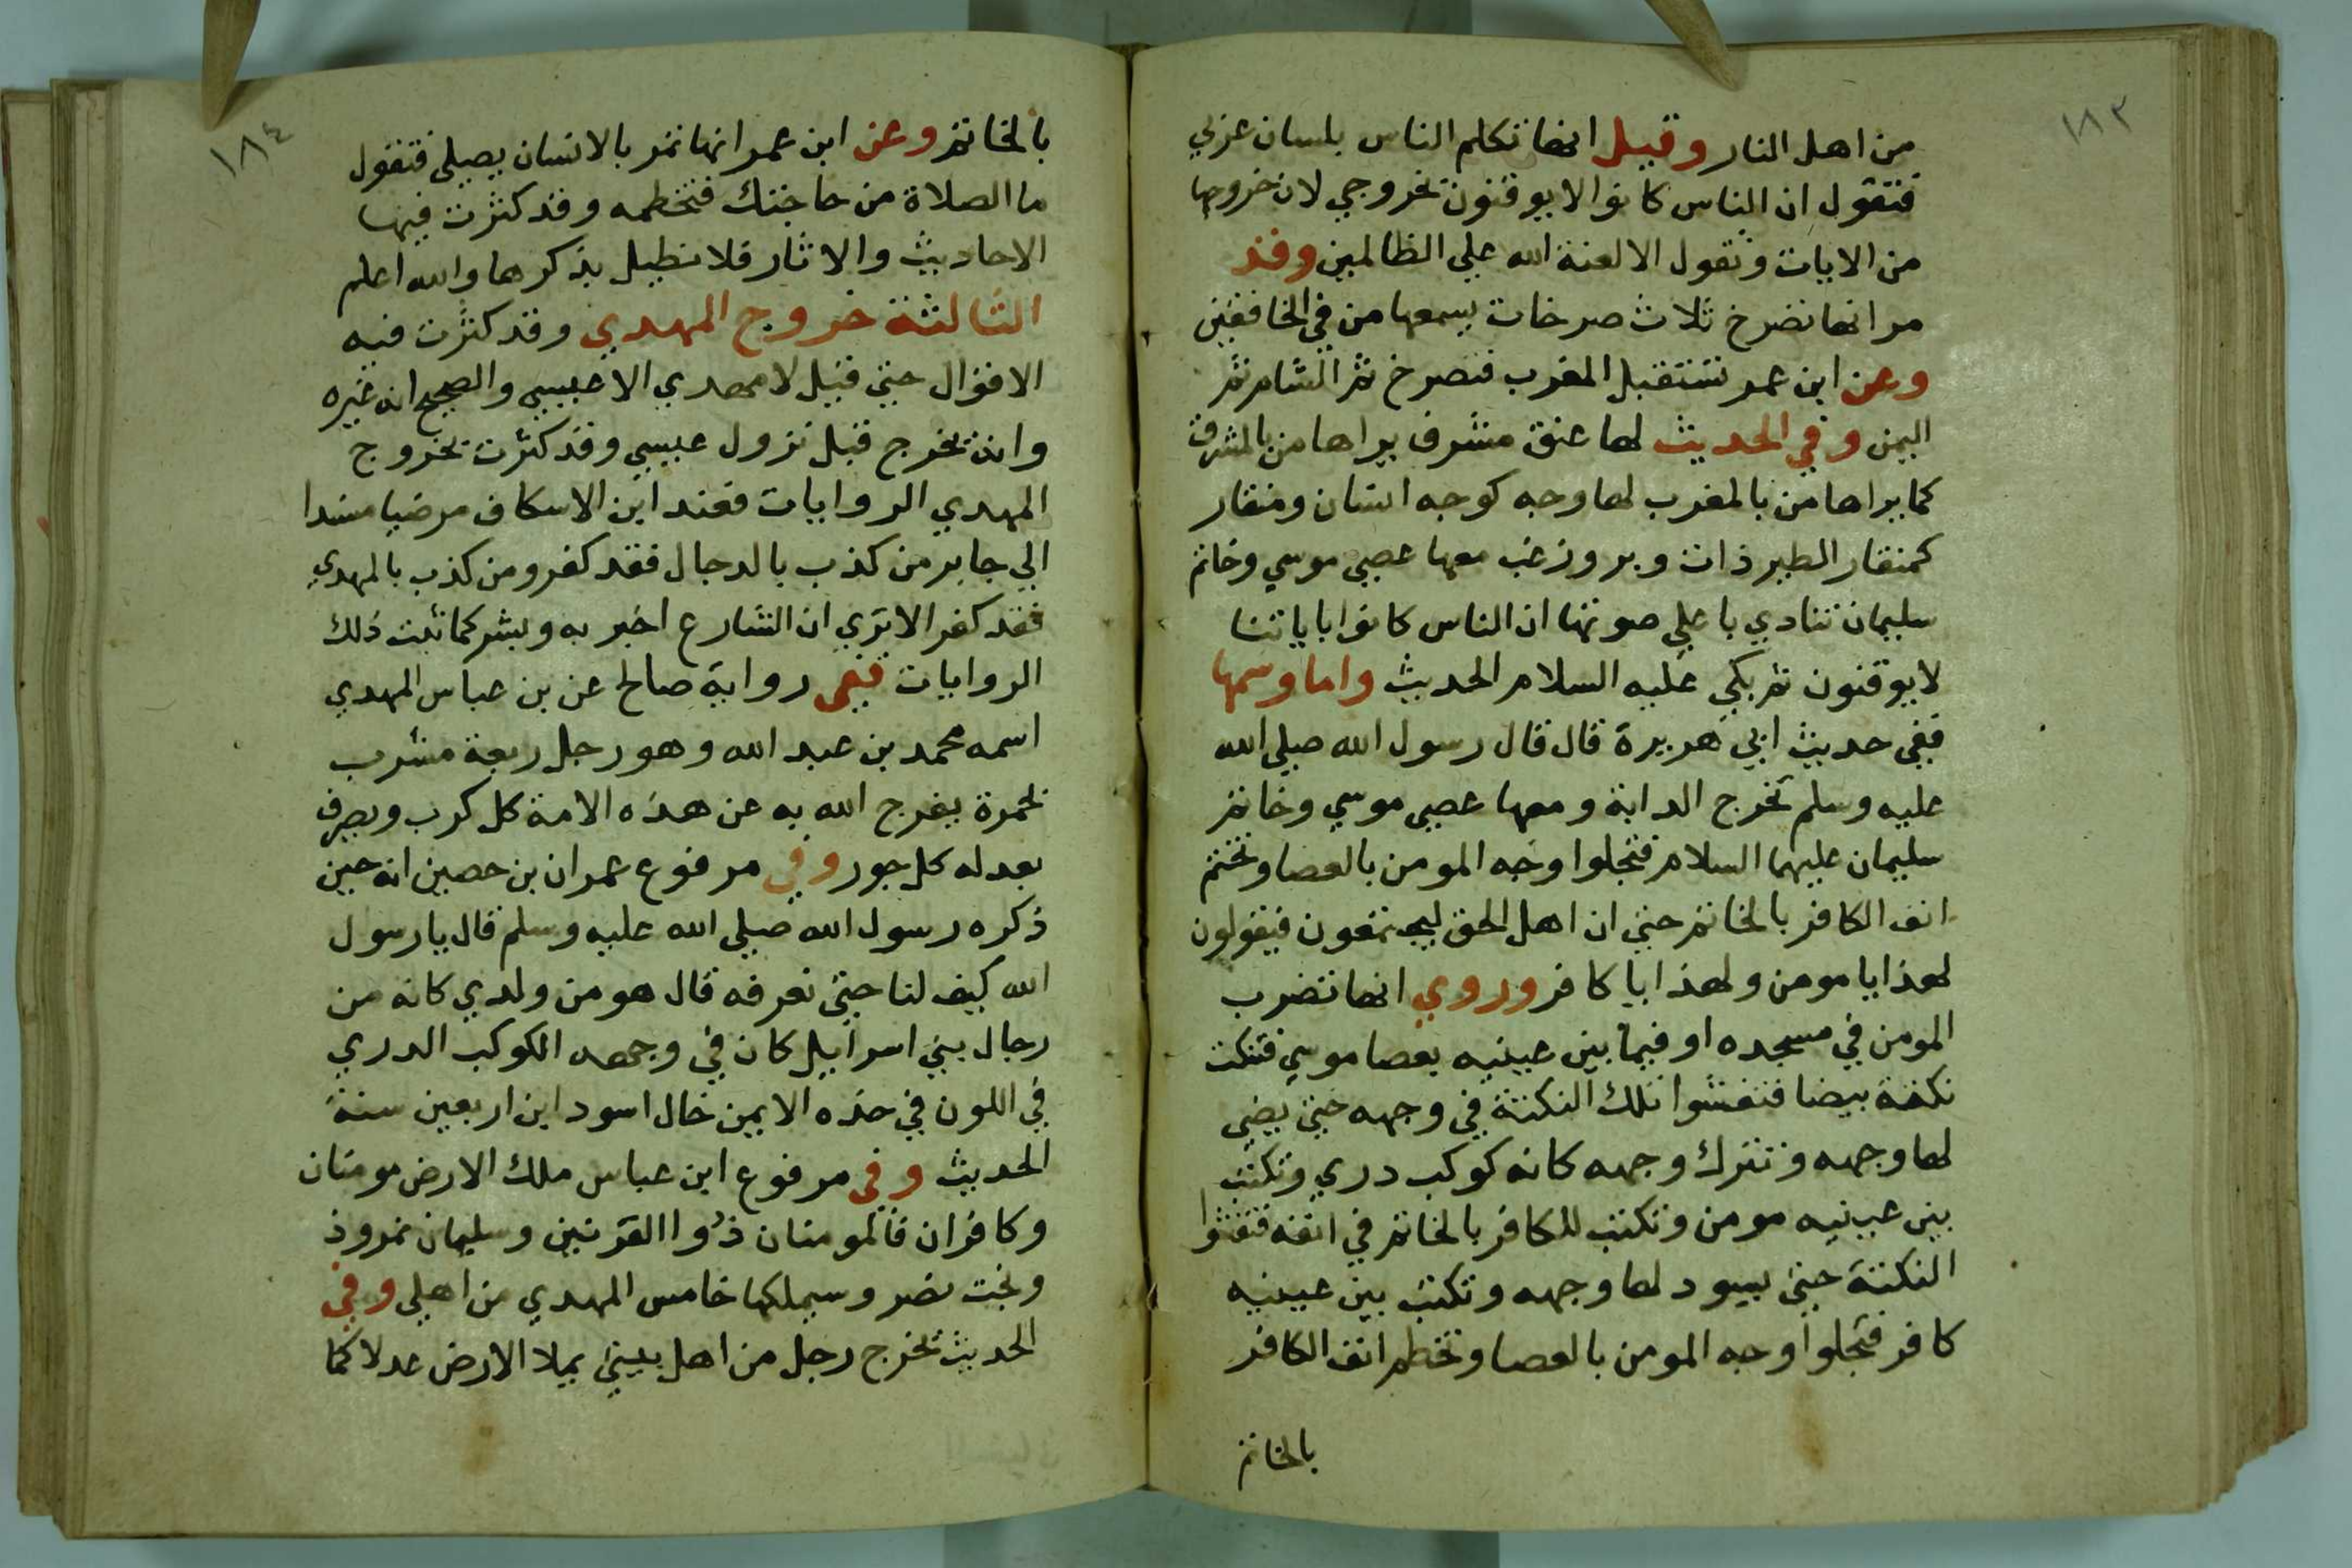 ١٨٣
من اهل النار وقيل انها تكلم الناس بلسان عربي
فتقول ان الناس كانوا لا يوقنون بخروجي لان خروجها
من الايات وتقول الا لعنة الله علي الظالمين وقد
مر انها تصرخ ثلاث صرخات يسمعها من في الخافقين
وعن ابن عمر تستقبل المغرب فتصرخ ثم الشام ثم
اليمن وفي الحديث لها عنق مشرف يراها من بالمشرق
كما يراها من بالمغرب لها وجه كوجه انسان ومنقار
كمنقار الطير ذات وبر وزغب معها عصي موسي وخاتم
سليمان تنادي باعلي صوتها ان الناس كانوا باياتنا
لا يوقنون ثم بكي عليه السلام الحديث واما وسمها
ففي حديث ابي هريرة قال قال رسول الله صلي الله
عليه وسلم تخرج الدابة ومعها عصي موسي وخاتم
سليمان عليهما السلام فتجلوا وجه المومن بالعصا وتختم
انف الكافر بالخاتم حتي ان اهل الحق ليجتمعون فيقولون
لهذا يا مومن ولهذا يا كافر وروي انها تضرب
المومن في مسجده او فيما بين عينيه بعصا موسي فتنكت
نكتة بيضا فتفشوا تلك النكتة في وجهه حتي يضي
لها وجهه وتترك وجهه كانه كوكب دري وتكتب
بين عينيه مومن وتكتب للكافر بالخاتم في انفه فتفشوا
النكتة حتي يسود لها وجهه وتكتب بين عينيه
كافر فتجلوا وجه المومن بالعصا وتخطم انف الكافر
بالخاتم
١٨٤
بالخاتم وعن ابن عمر انها تمر بالانسان يصلي فتقول
ما الصلاة من حاجتك فتخطمه وقد كثرت فيها
الاحاديث والاثار فلا نطيل بذكرها والله اعلم
الثالثة خروج المهدي وقد كثرت فيه
الاقوال حتي قيل لا مهدي الا عيسي والصحيح انه غيره
وانه يخرج قبل نزول عيسي وقد كثرت بخروج
المهدي الروايات فعند ابن الاسكاف مرضيا مسندا
الي جابر من كذب بالدجال فقد كفر ومن كذب بالمهدي
فقد كفر الا تري ان الشارع اخبر به وبشر كما ثبت ذلك
الروايات ففي رواية صالح عن بن عباس المهدي
اسمه محمد بن عبد الله وهو رجل ربعة مشرب
بحمرة يفرج الله به عن هذه الامة كل كرب ويصرف
بعدله كل جور وفي مرفوع عمران بن حصين انه حين
ذكره رسول الله صلي الله عليه وسلم قال يا رسول
الله كيف لنا حتي نعرفه قال هو من ولدي كانه من
رجال بني اسرايل كان في وجهه الكوكب الدري
في اللون في خده الايمن خال اسود ابن اربعين سنة
الحديث وفي مرفوع ابن عباس ملك الارض مومنان
وكافران فالمومنان ذوا القرنين وسليمان نمروذ
وبخت نصر وسيملكها خامس المهدي من اهلي وفي
الحديث يخرج رجل من اهل بيتي يملا الارض عدلا كما